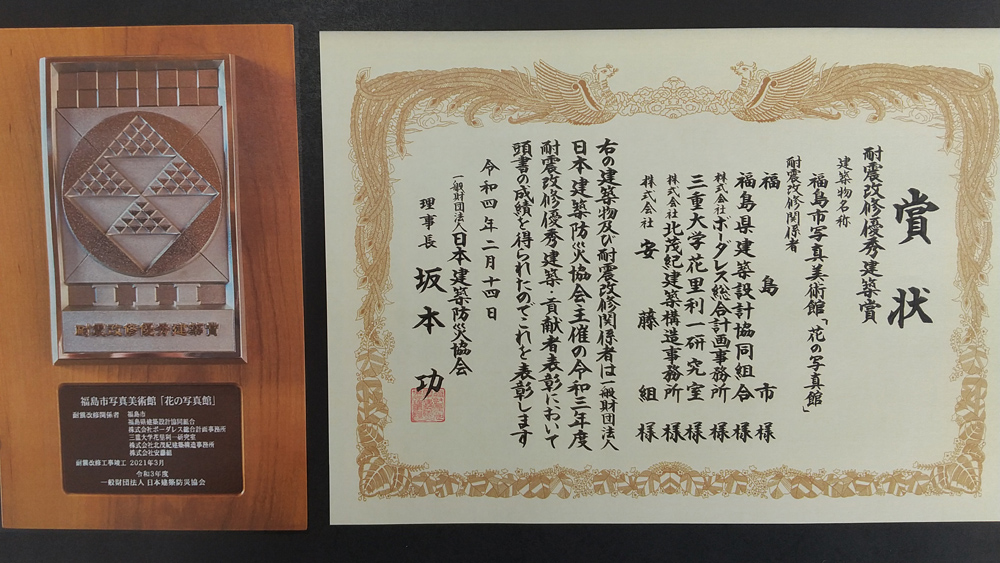 耐震改修優秀建築賞
福島市写真美術館「花の写真館」
耐震改修関係者 福島市
福島県建築設計協同組合
株式会社ボーダレス総合計画事務所
三重大学花里利一研究室
株式会社北茂紀建築構造事務所
株式会社安藤組
耐震改修工事竣工 2021年3月
令和3年度
一般財団法人 日本建築防災協会
賞状
耐震改修優秀建築賞
建築物名称
福島市写真美術館「花の写真館」
耐震改修関係者
福島市様
福島県建築設計協同組合様
株式会社ボーダレス総合計画事務所様
三重大学花里利一研究室様
株式会社北茂紀建築構造事務所様
株式会社安藤組様
右の建築物及び耐震改修関係者は一般財団法人
日本建築防災協会主催の令和三年度
耐震改修優秀建築・貢献者表彰において
頭書の成績を得られたのでこれを表彰します
令和四年二月十四日
一般財団法人日本建築防災協会
理事長 坂本功